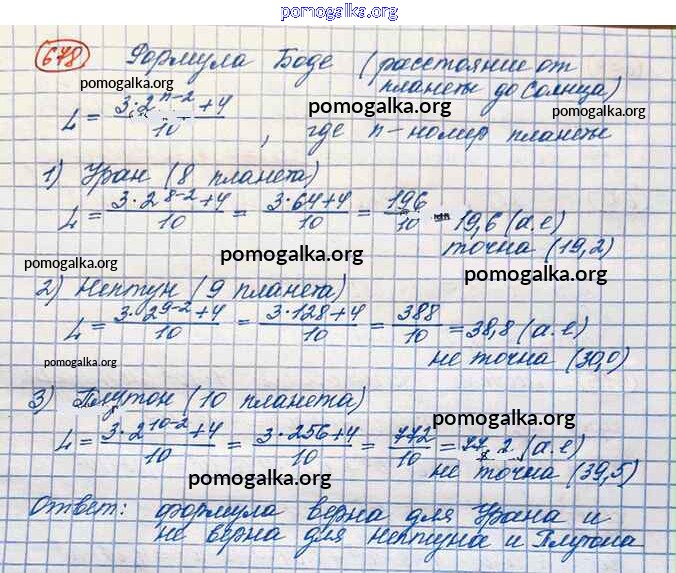 pomogalka.org
678 Формула Боде (расстояние от
планеты до Солнца)
pomogalka.org pomogalka.org
L = (3·2^(n-2)+4)/10 , где n - номер планеты
1) Уран (8 планета)
L = (3·2^(8-2)+4)/10 = (3·64+4)/10 = 196/10 = 19,6 (а.е)
точна (19,2)
pomogalka.org pomogalka.org pomogalka.org
2) Нептун (9 планета)
L = (3·2^(9-2)+4)/10 = (3·128+4)/10 = 388/10 = 38,8 (а.е)
не точна (30,0)
pomogalka.org
3) Плутон (10 планета)
pomogalka.org
L = (3·2^(10-2)+4)/10 = (3·256+4)/10 = 772/10 = 77,2 (а.е)
не точна (39,5)
pomogalka.org
Ответ: формула верна для Урана и
не верна для Нептуна и Плутона